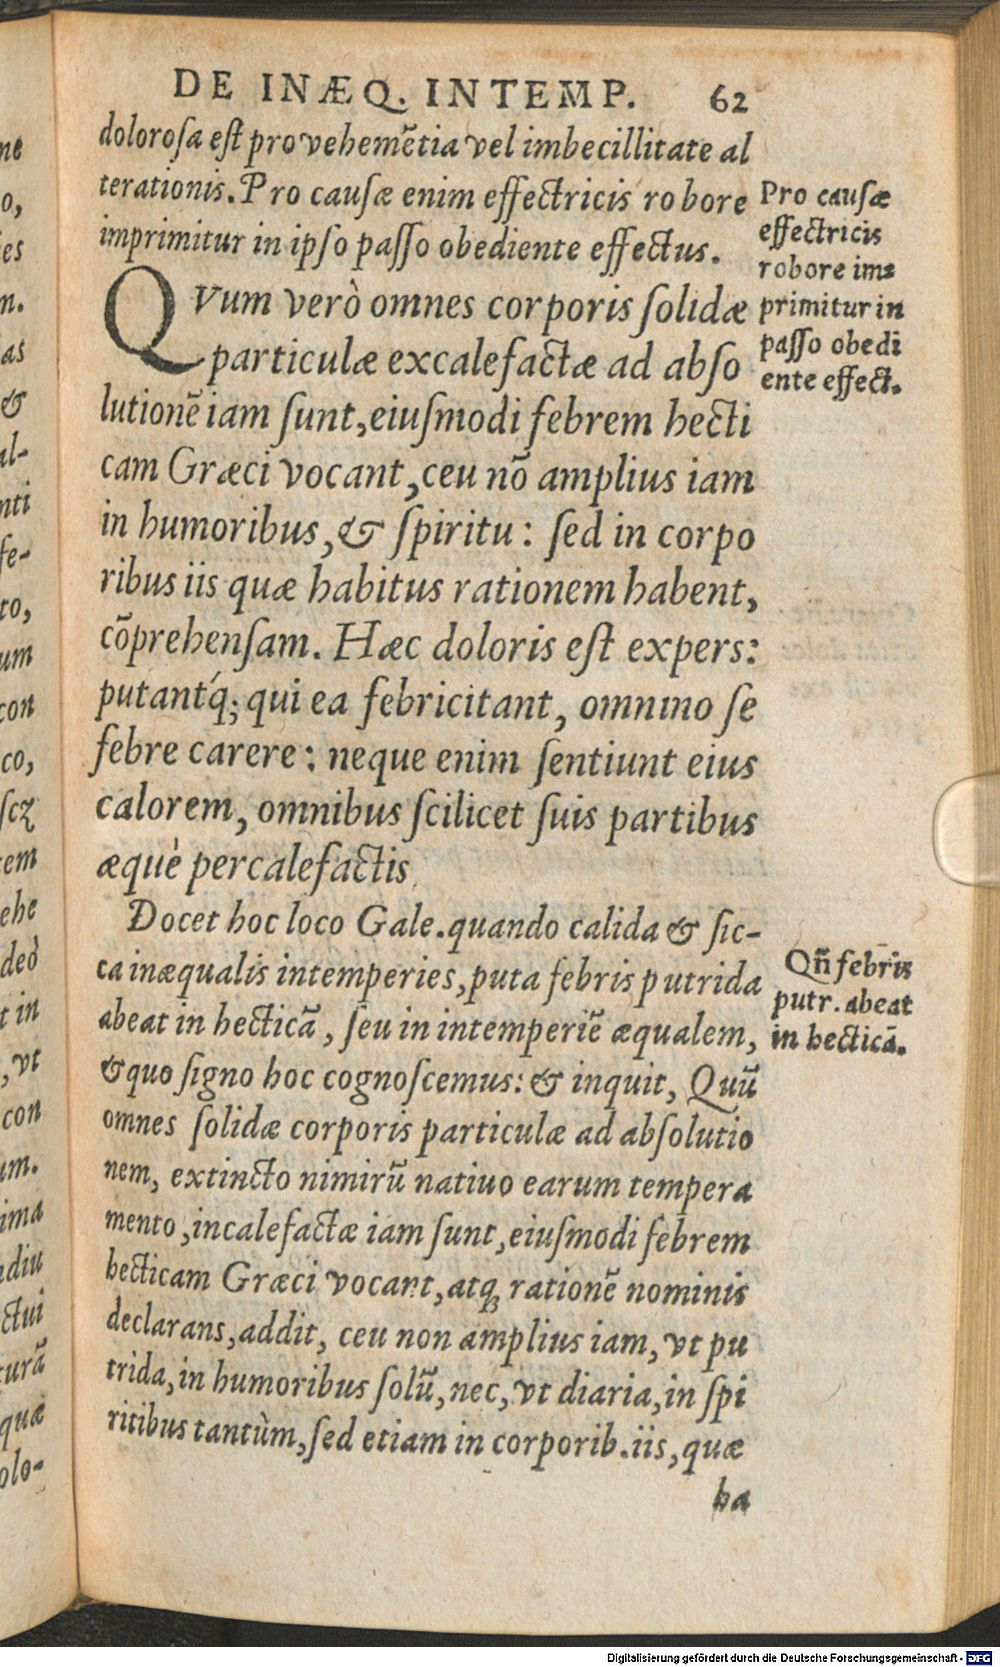 DE INÆQ. INTEMP. 62
doloroſa eſt pro vehemẽtia vel imbecillitate al
terationis. Pro cauſæ enim effectricis robore
imprimitur in ipſo paſſo obediente effectus.
Pro cauſæ
effectricis
robore im=
primitur in
paſſo obedi
ente effect.
QVum verò omnes corporis ſolidæ
particulæ excalefactæ ad abſo
lutionẽ iam ſunt, eiuſmodi febrem hecti
cam Græci vocant, ceu nõ amplius iam
in humoribus, & ſpiritu: ſed in corpo
ribus iis quæ habitus rationem habent,
cõprehenſam. Hæc doloris eſt expers:
putantq́; qui ea febricitant, omnino ſe
febre carere: neque enim ſentiunt eius
calorem, omnibus ſcilicet ſuis partibus
æquè percalefactis.
Docet hoc loco Gale. quando calida & ſic-
ca inæqualis intemperies, puta febris putrida
abeat in hecticã, ſeu in intemperiẽ æqualem,
& quo ſigno hoc cognoſcemus: & inquit, Quũ
omnes ſolidæ corporis particulæ ad abſolutio
nem, extincto nimirũ natiuo earum tempera
mento, incalefactæ iam ſunt, eiuſmodi febrem
hecticam Græci vocant, atq; rationẽ nominis
declarans, addit, ceu non amplius iam, vt pu
trida, in humoribus ſolũ, nec, vt diaria, in ſpi
ritibus tantùm, ſed etiam in corporib. iis, quæ
ha
Qñ febris
putr. abeat
in hecticã.
Digitalisierung gefördert durch die Deutsche Forschungsgemeinschaft - DFG